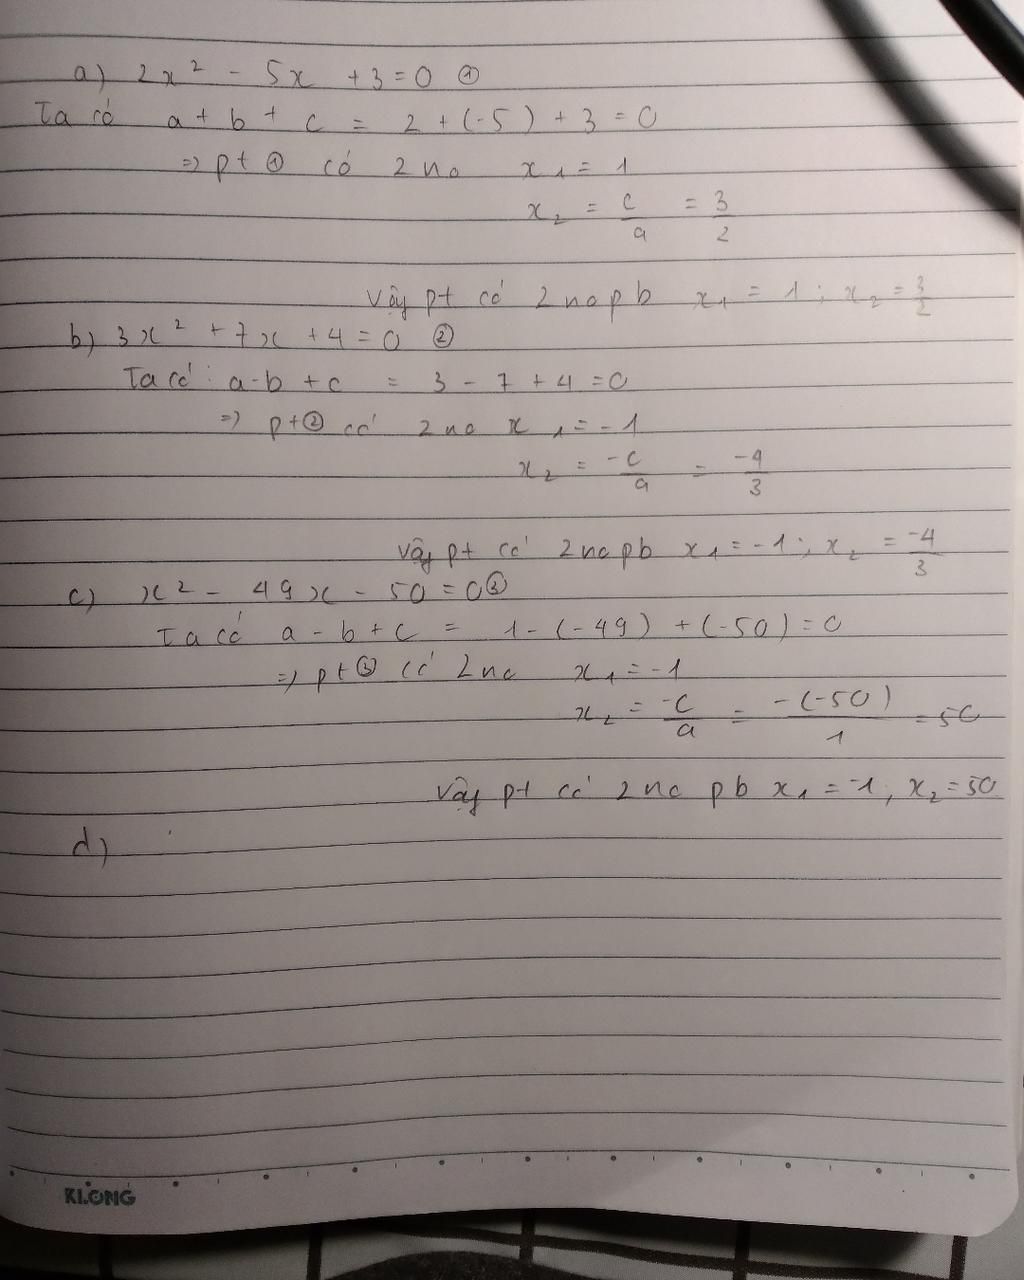 a) 2x² - 5x + 3 = 0 ①
Ta có a + b + c = 2 + (-5) + 3 = 0
=> pt ① có 2 no x₁ = 1
x₂ = c/a = 3/2
Vậy pt có 2 no pb x₁ = 1 ; x₂ = 3/2
b) 3x² + 7x + 4 = 0 ②
Ta có : a - b + c = 3 - 7 + 4 = 0
=> pt ② có 2 no x₁ = -1
x₂ = -c/a = -4/3
Vậy pt có 2 no pb x₁ = -1 ; x₂ = -4/3
c) x² - 49x - 50 = 0 ③
Ta có a - b + c = 1 - (-49) + (-50) = 0
=> pt ③ có 2 no x₁ = -1
x₂ = -c/a = -(-50)/1 = 50
Vậy pt có 2 no pb x₁ = -1 ; x₂ = 50
d)
KLONG